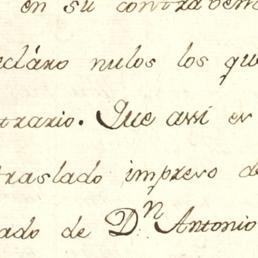 en su contraven
eclaro nulos los qu
trario. Que assi es
traslado impreso d
ado de Dⁿ. Antonio